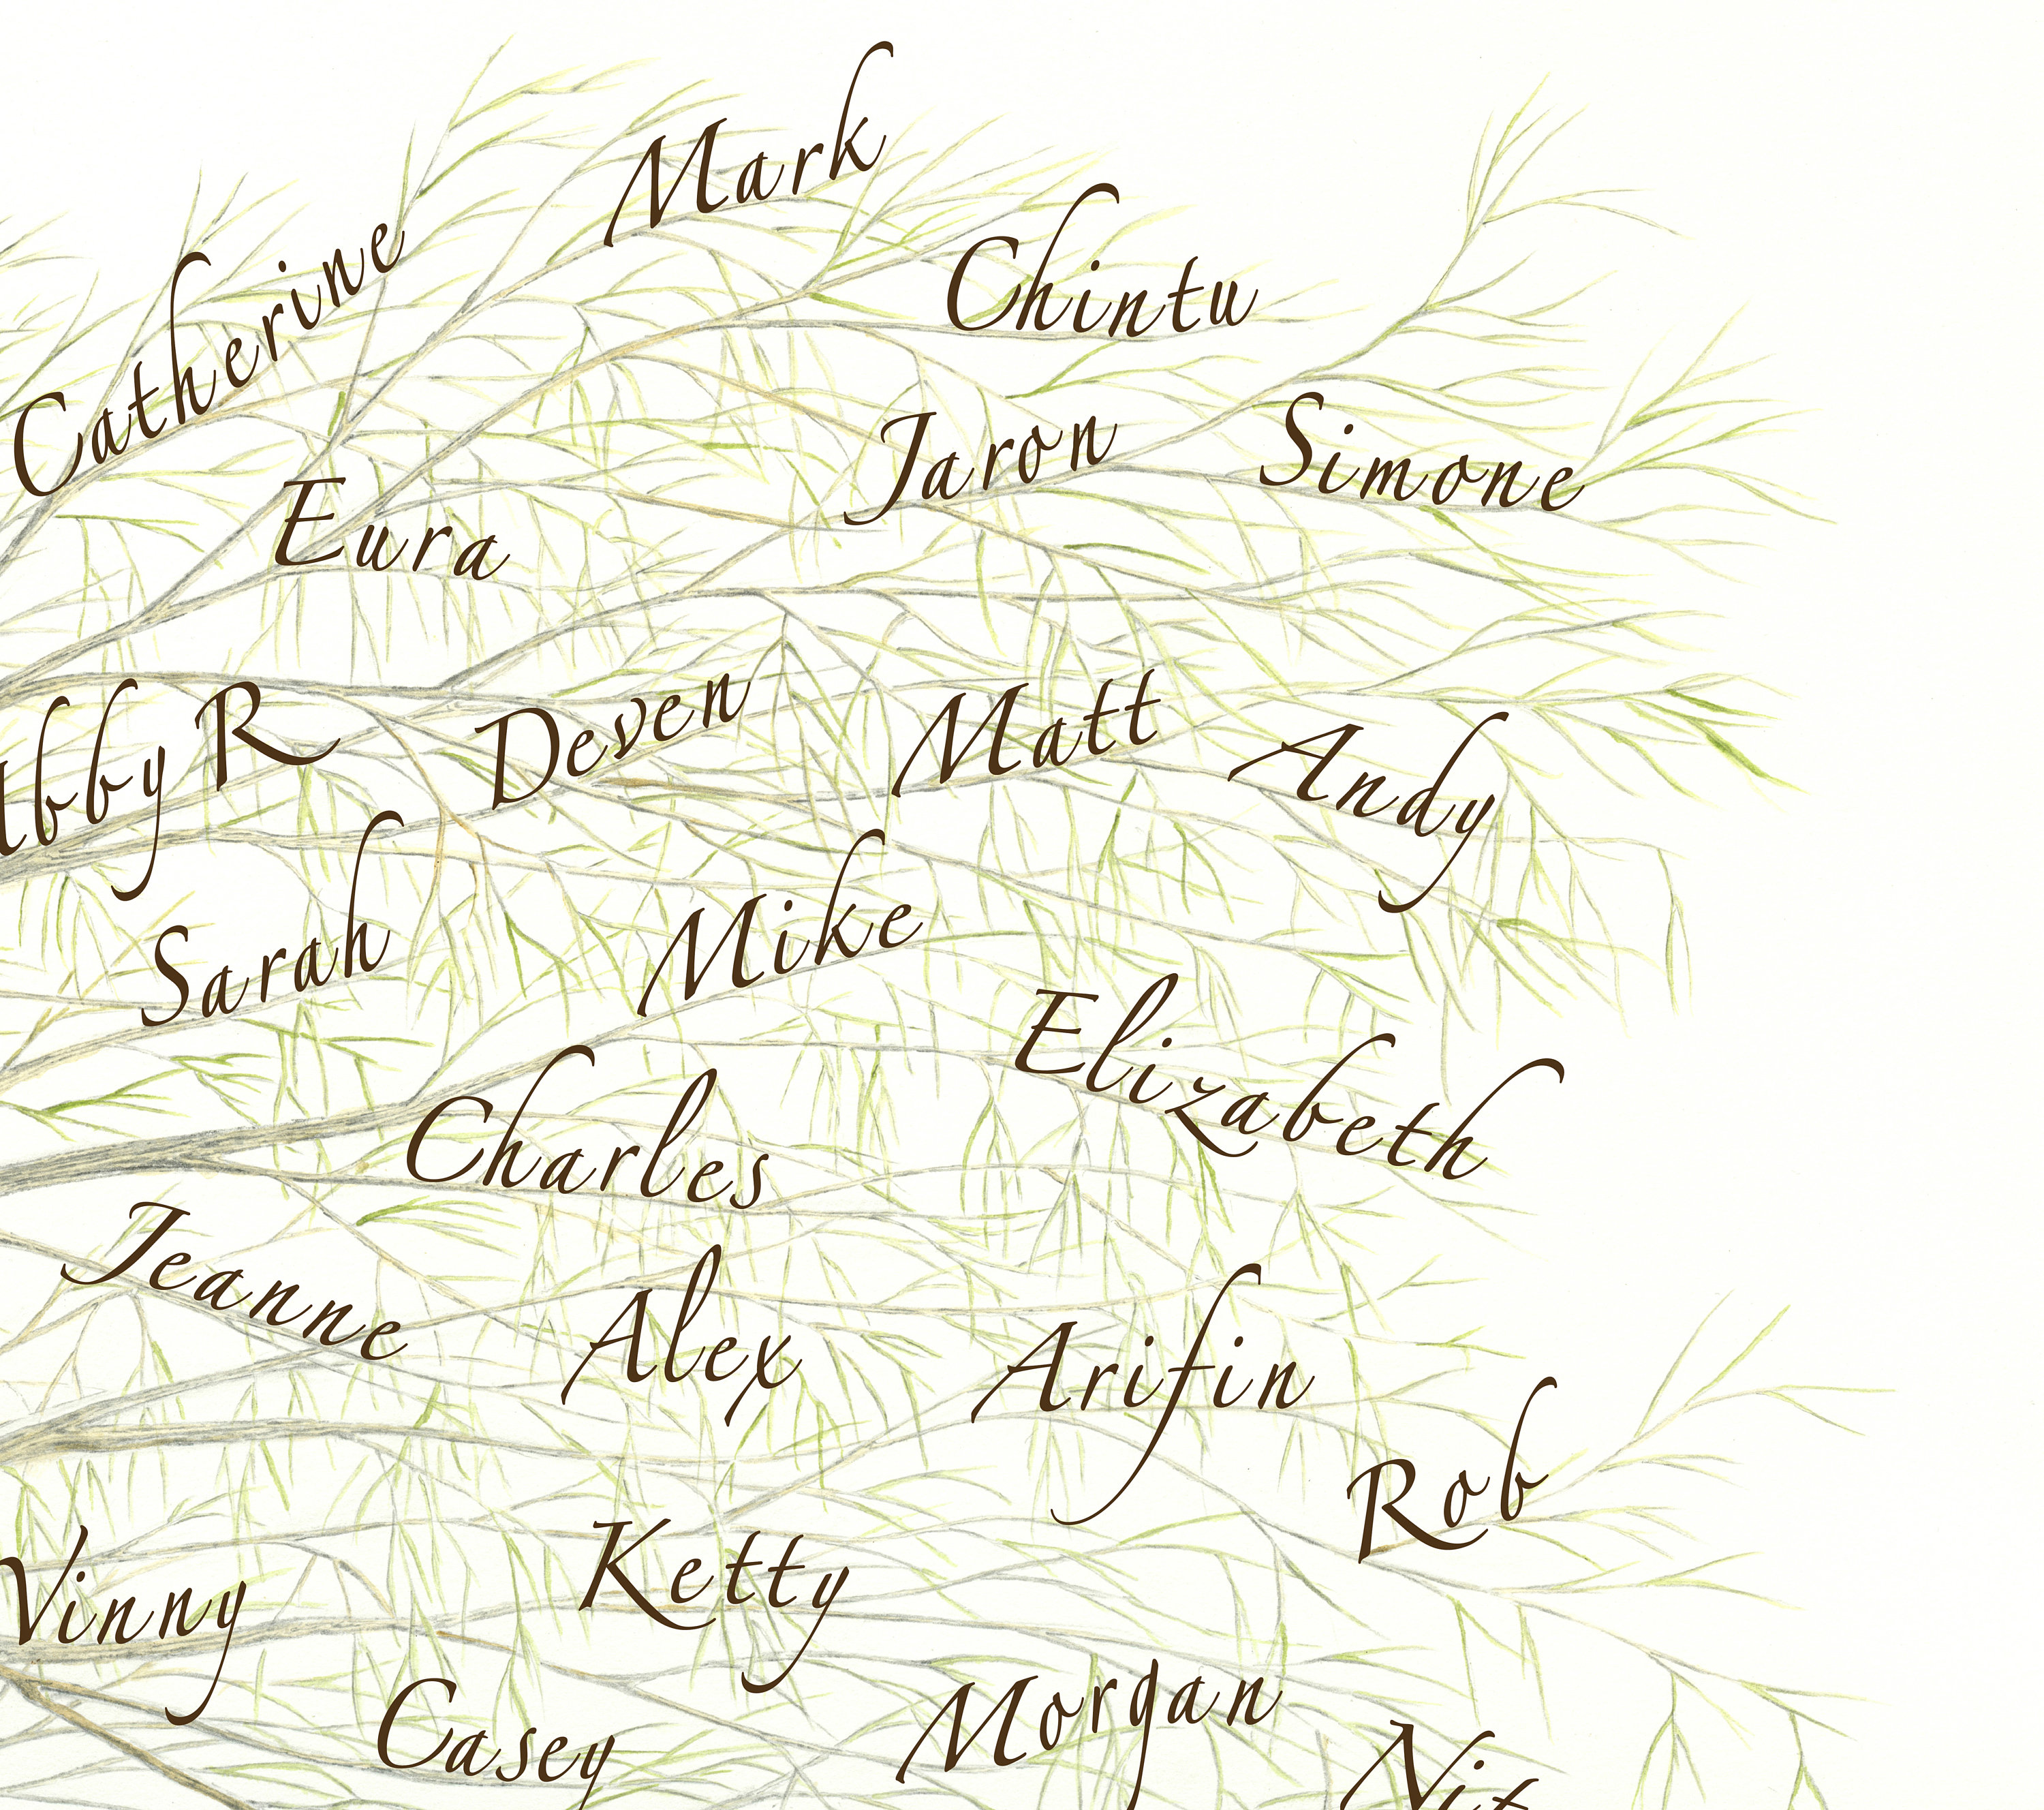 Mark
Catherine
Chintu
Jaron
Simone
Eura
Abby R
Deven
Matt
Andy
Sarah
Mike
Elizabeth
Charles
Jeanne
Alex
Arifin
Rob
Vinny
Ketty
Casey
Morgan